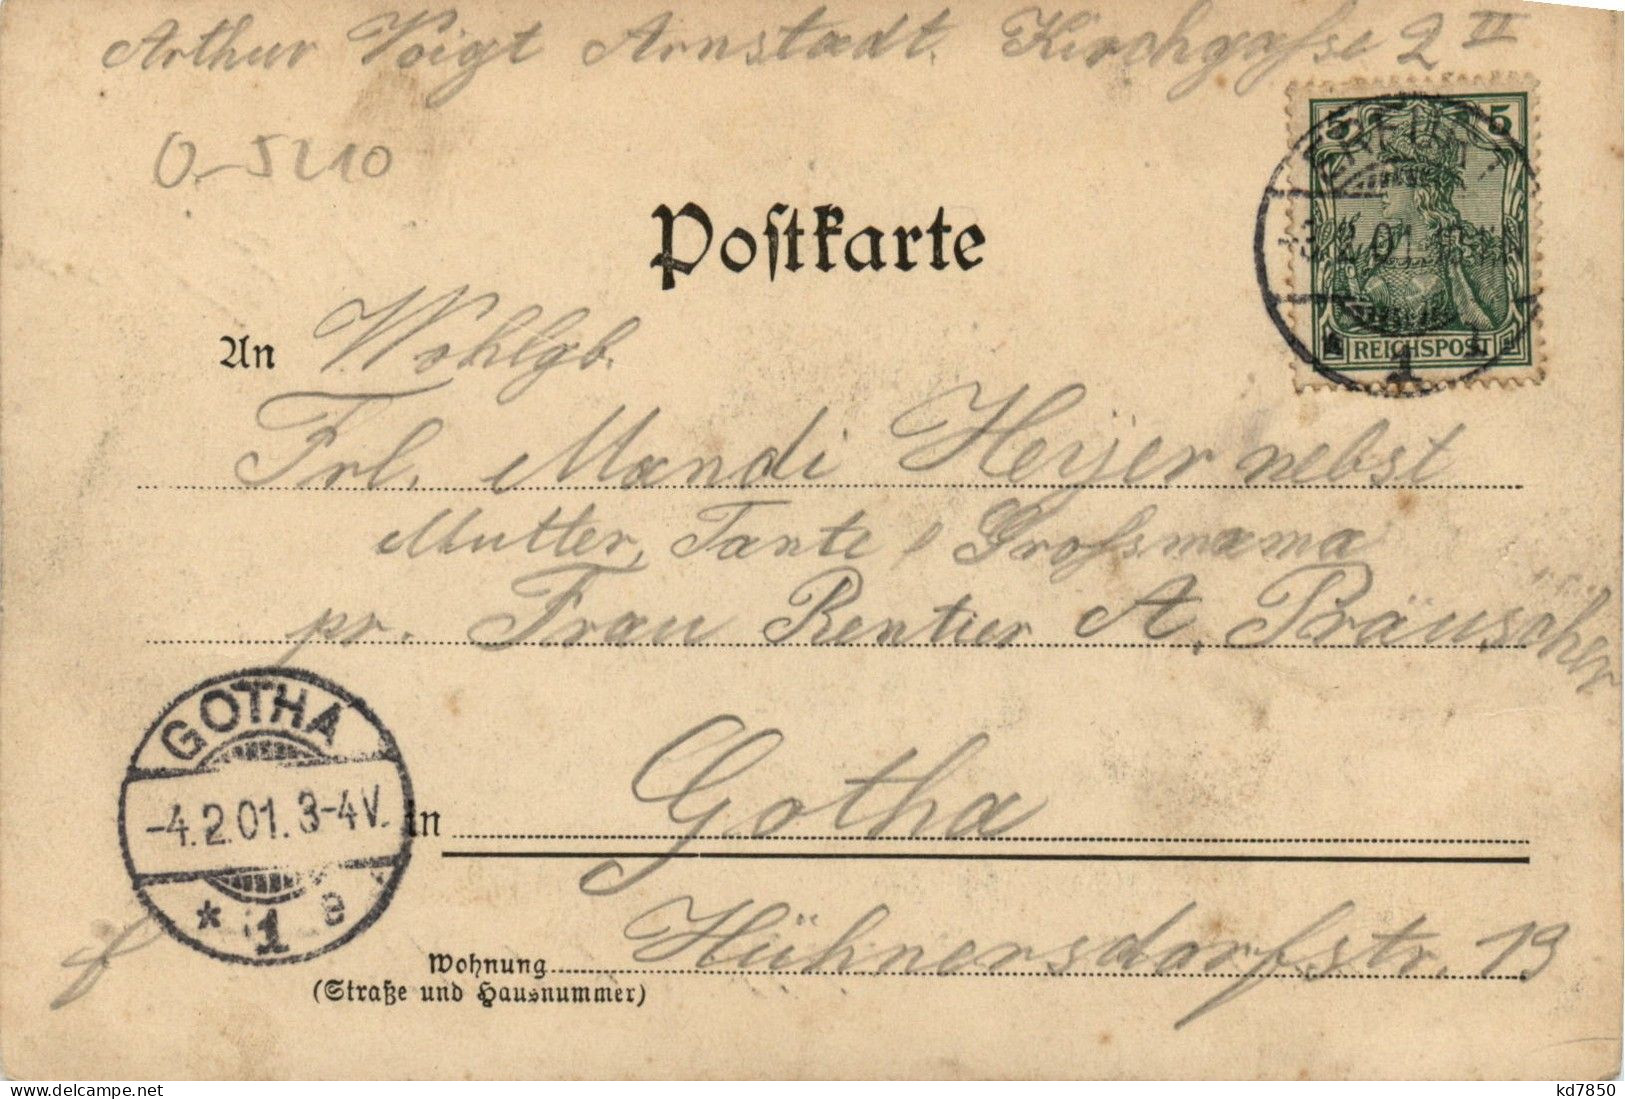 Arthur Voigt Arnstadt. Kirchgasse 2 II
O-5210
5 5
ERFURT
3.2.01.
1
REICHSPOST
Postkarte
An Wohlgb.
Frl. Mandi Heÿer nebst
Mutter, Tante, Grossmama
pr. Frau Rentier A. Präuscher
GOTHA
-4.2.01. 3-4V.
* 1 a
in Gotha
Wohnung Hühnersdorfstr. 19
(Straße und Hausnummer)
kd7850